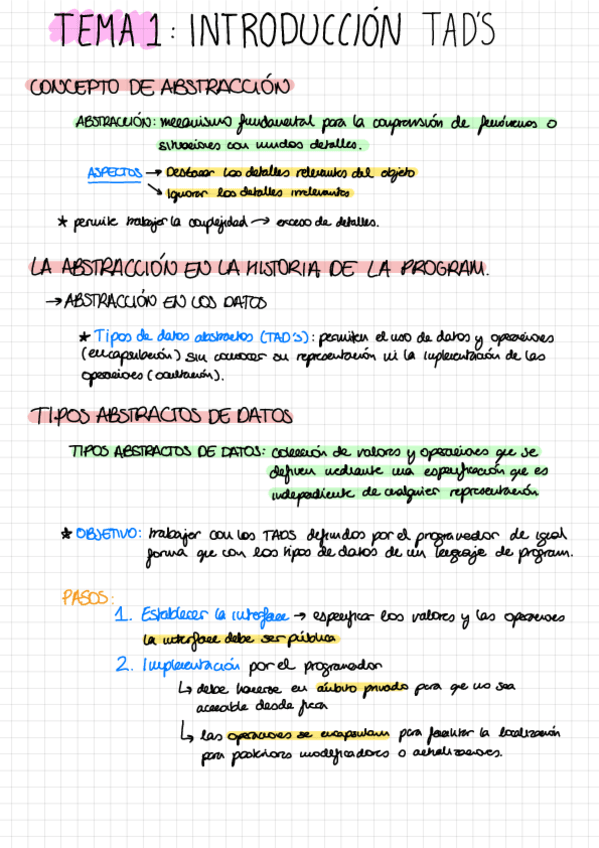 TEMA 1: INTRODUCCIÓN TAD'S
CONCEPTO DE ABSTRACCIÓN
ABSTRACCIÓN: mecanismo fundamental para la comprensión de fenómenos o
situaciones con muchos detalles.
ASPECTOS → Destacar los detalles relevantes del objeto
↘ Ignorar los detalles irrelevantes
* permite trabajar la complejidad → exceso de detalles.
LA ABSTRACCIÓN EN LA HISTORIA DE LA PROGRAM.
→ ABSTRACCIÓN EN LOS DATOS
* Tipos de datos abstractos (TAD'S): permiten el uso de datos y operaciones
(encapsulación) sin conocer su representación ni la implementación de las
operaciones (ocultación).
TIPOS ABSTRACTOS DE DATOS
TIPOS ABSTRACTOS DE DATOS: colección de valores y operaciones que se
definen mediante una especificación que es
independiente de cualquier representación
* OBJETIVO: trabajar con los TADS definidos por el programador de igual
forma que con los tipos de datos de un lenguaje de program.
PASOS:
1. Establecer la interface → especificar los valores y las operaciones
la interface debe ser pública
2. Implementación por el programador
↳ debe hacerse en ámbito privado para que no sea
accesible desde fuera
↳ las operaciones se encapsulan para facilitar la localización
para posteriores modificaciones o actualizaciones.